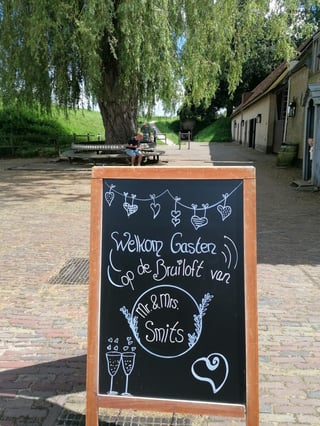 Welkom Gasten
op de Bruiloft van
Mr. & Mrs.
Smits